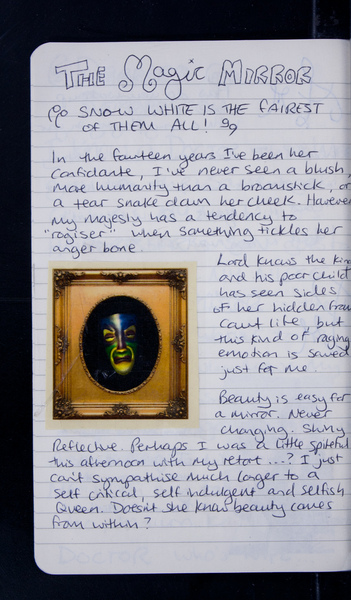 THE Magic MIRROR
" SNOW WHITE IS THE FAIREST
OF THEM ALL! "
In the fourteen years I've been her
confidante, I've never seen a blush,
more humanity than a broomstick, or
a tear snake down her cheek. However
my majesty has a tendency to
"rogiser" when something tickles her
anger bone.
Lord knows the kin
and his poor child
has seen sides
of her hidden from
court life, but
this kind of raging
emotion is saved
just for me.
Beauty is easy for
a mirror. Never
changing. Shiny
Reflective. Perhaps I was a little spiteful
this afternoon with my retort ...? I just
can't sympathise much longer to a
self critical, self indulgent and selfish
Queen. Doesn't she know beauty comes
from within?